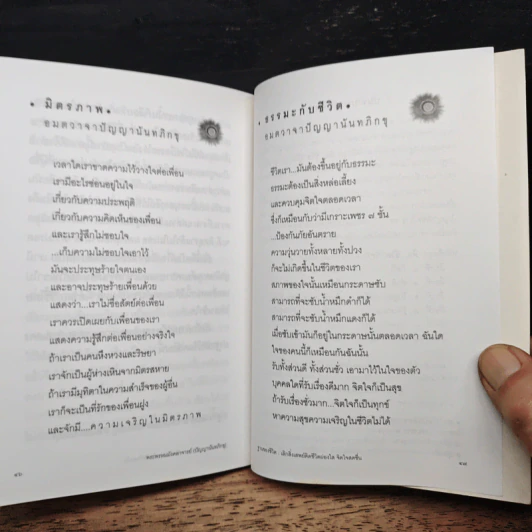 • มิตรภาพ •
อมตวาจาปัญญานันทภิกขุ
เวลาใดเราขาดความไว้วางใจต่อเพื่อน
เรามีอะไรซ่อนอยู่ในใจ
เกี่ยวกับความประพฤติ
เกี่ยวกับความคิดเห็นของเพื่อน
และเรารู้สึกไม่ชอบใจ
...เก็บความไม่ชอบใจเอาไว้
มันจะประทุษร้ายใจตนเอง
และอาจประทุษร้ายเพื่อนด้วย
แสดงว่า...เราไม่ซื่อสัตย์ต่อเพื่อน
เราควรเปิดเผยกับเพื่อนของเรา
แสดงความรู้สึกต่อเพื่อนอย่างจริงใจ
ถ้าเราเป็นคนหึงหวงและริษยา
เราจักเป็นผู้ห่างเหินจากมิตรสหาย
ถ้าเรามีมุทิตาในความสำเร็จของผู้อื่น
เราก็จะเป็นที่รักของเพื่อนฝูง
และจักมี....ความเจริญในมิตรภาพ
๑๖
• ธรรมะกับชีวิต •
อมตวาจาปัญญานันทภิกขุ
ชีวิตเรา...มันต้องขึ้นอยู่กับธรรมะ
ธรรมะต้องเป็นสิ่งหล่อเลี้ยง
และควบคุมจิตใจตลอดเวลา
ซึ่งก็เหมือนกับว่ามีเกราะเพชร ๗ ชั้น
...ป้องกันภัยอันตราย
ความวุ่นวายทั้งหลายทั้งปวง
ก็จะไม่เกิดขึ้นในชีวิตของเรา
สภาพของใจนั้นเหมือนกระดาษซับ
สามารถที่จะซับน้ำหมึกดำก็ได้
สามารถที่จะซับน้ำหมึกแดงก็ได้
เมื่อซับเข้ามันก็อยู่ในกระดาษนั้นตลอดเวลา ฉันใด
ใจของคนนี้ก็เหมือนกันฉันนั้น
รับทั้งส่วนดี ทั้งส่วนชั่ว เอามาไว้ในใจของตัว
บุคคลใดที่รับเรื่องดีมาก จิตใจก็เป็นสุข
ถ้ารับเรื่องชั่วมาก...จิตใจก็เป็นทุกข์
หาความสุขความเจริญในชีวิตไม่ได้
๑๗